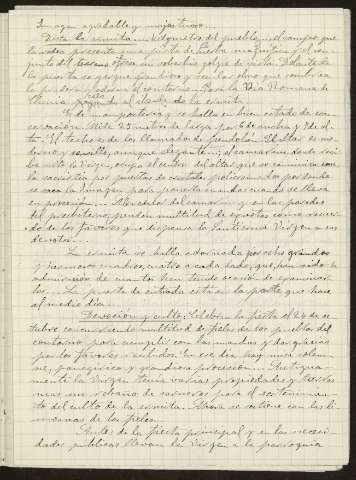 Imagen agradable y magestuosa.
Dista la ermita ... kilometros del pueblo, el campo que
la rodea presenta una planta de fuesta magnifica y el con-
junto del terreno ofrece un soberbio golpe de vista. Delante de
la puerta se yergue frondoso y secular olmo que sombrea
la pradera y adorna el contorno. Pasa la Via Romana de
Numancia por el lado de la ermita.
Es de mamposteria y se halla en buen estado de con-
servación. Mide 23 metros de larga por 6 de ancha y 7 de al-
ta. El techo es de los llamados de pendola. El altar es mo-
derno y esbelto, aunque elegante, y el camarin, donde reci-
be culto la Virgen, ocupa el centro del altar que se comunica con
la sacristia por puertas de cristal policromado por donde
se saca la Imagen para ponerla en andas cuando se lleva
en procesión. Alrededor del camarin y en las paredes
del presbiterio, penden multitud de exvotos como recuer-
do de los favores que dispensa la Santisima Virgen a sus
devotos.
La ermita se halla adornada por ocho grandes
y hermosos cuadros, cuatro a cada lado, que han sido la
admiración de cuantos han tenido ocasión de examinar-
los. La puerta de entrada está en la parte que hace
al medio dia.
Devoción y culto. Celebra la fiesta el 24 de oc-
tubre concurriendo multitud de fieles de los pueblos del
contorno para cumplir con las mandas y dar gracias
por los favores recibidos. En ese dia hay misa solem-
ne, panegirico y grandiosa procesión. Antigua-
mente la Virgen tenia varias propiedades y tierras
mas un rebaño de carneros para el sostenimien-
to del culto de la ermita. Ahora se sostiene con las li-
mosnas de los fieles.
Antes de la fiesta principal y en las necesi-
dades publicas llevan la Virgen a la parroquia